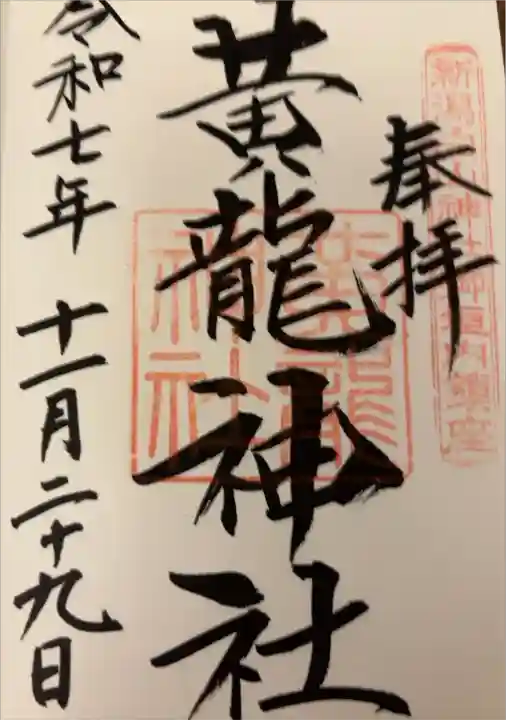 奉拝
黄龍神社
令和七年 十一月二十九日
黄龍
神社